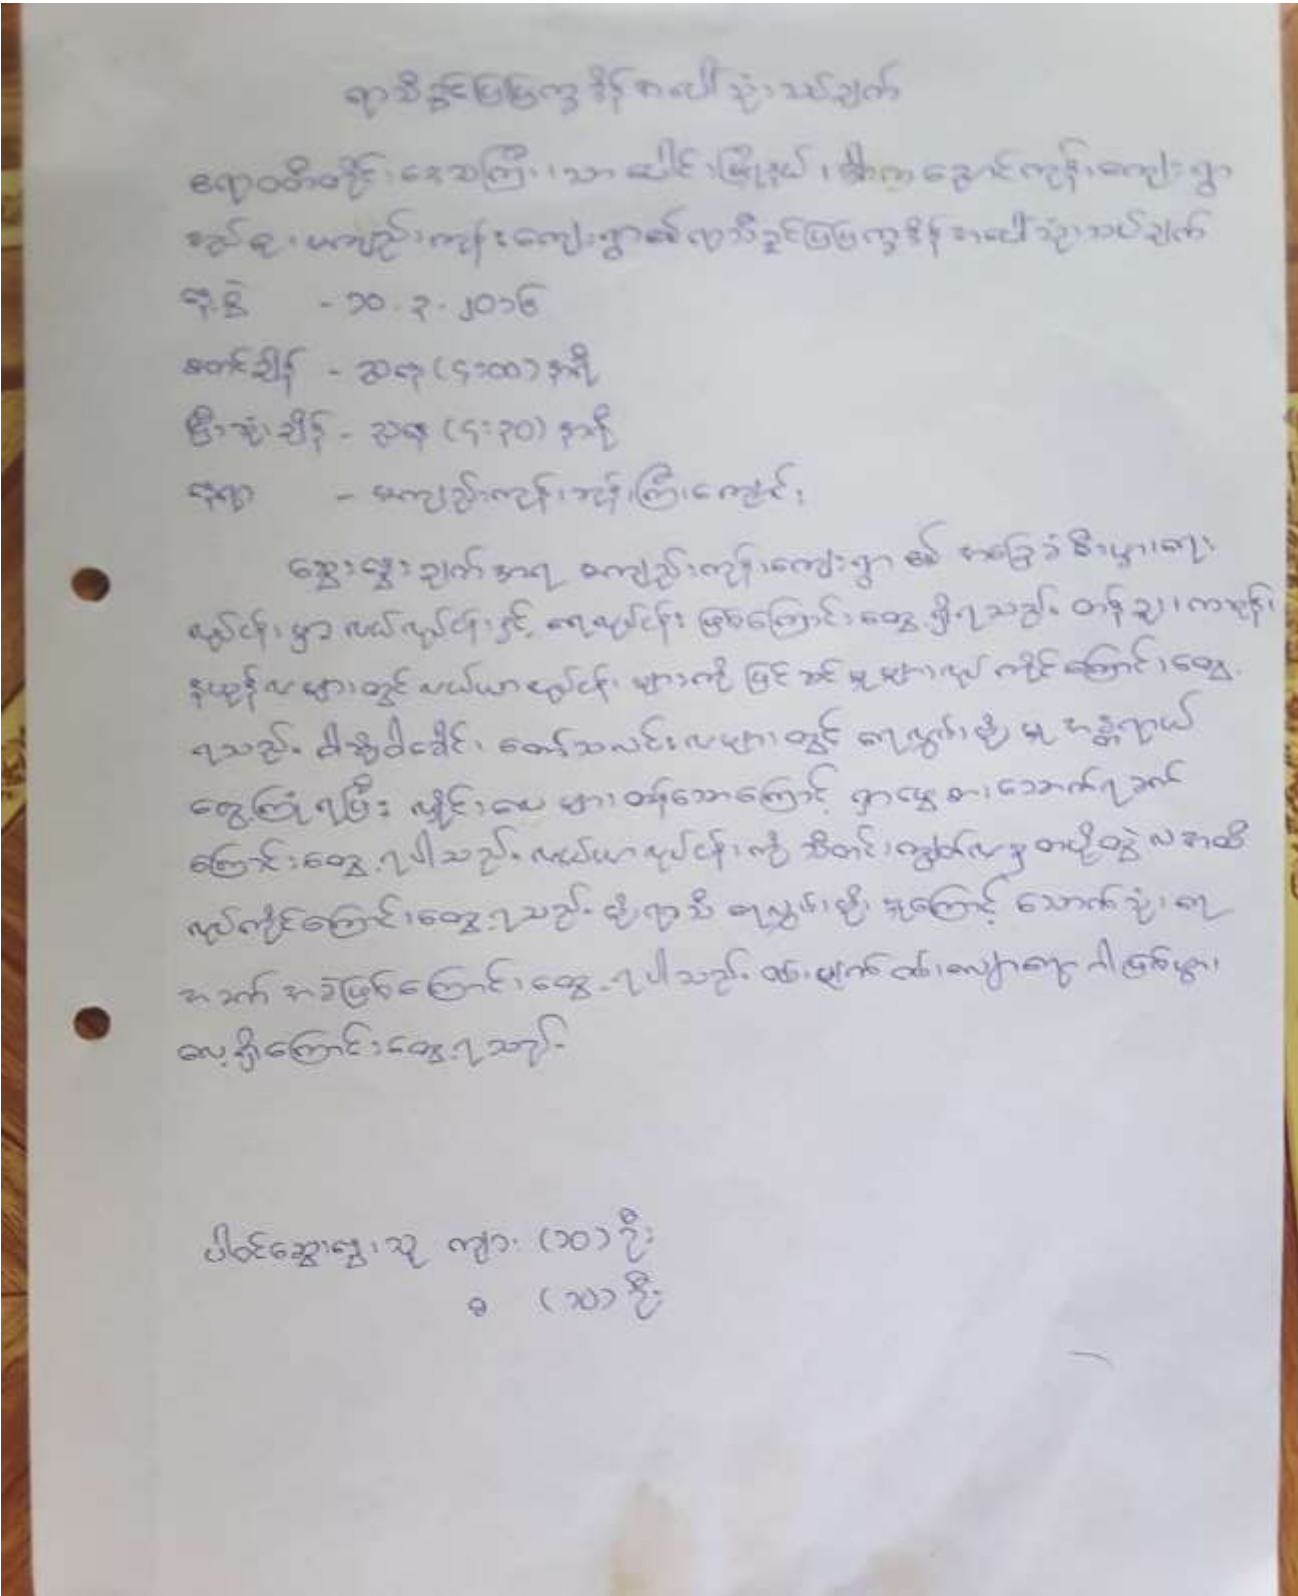 ရာသီခွင်ပြပြက္ခဒိန်အပေါ်သုံးသပ်ချက်
ဧရာဝတီတိုင်းဒေသကြီး၊ သာပေါင်းမြို့နယ်၊ ချောင်ကျွန်းကျေးရွာ
မကျည်းကျွန်းကျေးရွာ၏ ရာသီခွင်ပြပြက္ခဒိန်အပေါ်သုံးသပ်ချက်
နေ့စွဲ - ၁၀.၃.၂၀၁၆
စတင်ချိန် - ညနေ (၄:၀၀) နာရီ
ပြီးဆုံးချိန် - ညနေ (၄:၃၀) နာရီ
နေရာ - မကျည်းကျွန်းဘုန်းကြီးကျောင်း
ဆွေးနွေးချက်အရ မကျည်းကျွန်းကျေးရွာ၏ အခြေခံစီးပွားရေး
လုပ်ငန်းမှာ လယ်လုပ်ငန်းနှင့် ရေလုပ်ငန်း ဖြစ်ကြောင်း တွေ့ရှိရသည်။ တန်ခူး၊ ကဆုန်၊
နယုန်လများတွင် လယ်ယာလုပ်ငန်းများကို ပြင်ဆင်မှုများလုပ်ကိုင်ကြောင်းတွေ့
ရသည်။ ဝါဆို၊ ဝါခေါင်၊ တော်သလင်းလများတွင် ရေလွှမ်းမိုးမှု အန္တရာယ်
တွေ့ကြုံရပြီး လှိုင်းလေများ ထန်သောကြောင့် ရှာဖွေစားသောက်ရခက်
ကြောင်းတွေ့ရပါသည်။ လယ်ယာလုပ်ငန်းကို သီတင်းကျွတ်လမှ တပို့တွဲလအထိ
လုပ်ကိုင်ကြောင်းတွေ့ရသည်။ မိုးရာသီ ရေလွှမ်းမိုးမှုကြောင့် သောက်သုံးရေ
အခက်အခဲဖြစ်ကြောင်းတွေ့ရပါသည်။ ဝမ်းပျက်ဝမ်းလျှောရောဂါဖြစ်ပွား
လေ့ရှိကြောင်းတွေ့ရသည်။
ပါဝင်ဆွေးနွေးသူ ကျား (၁၀) ဦး
မ (၁၀) ဦး